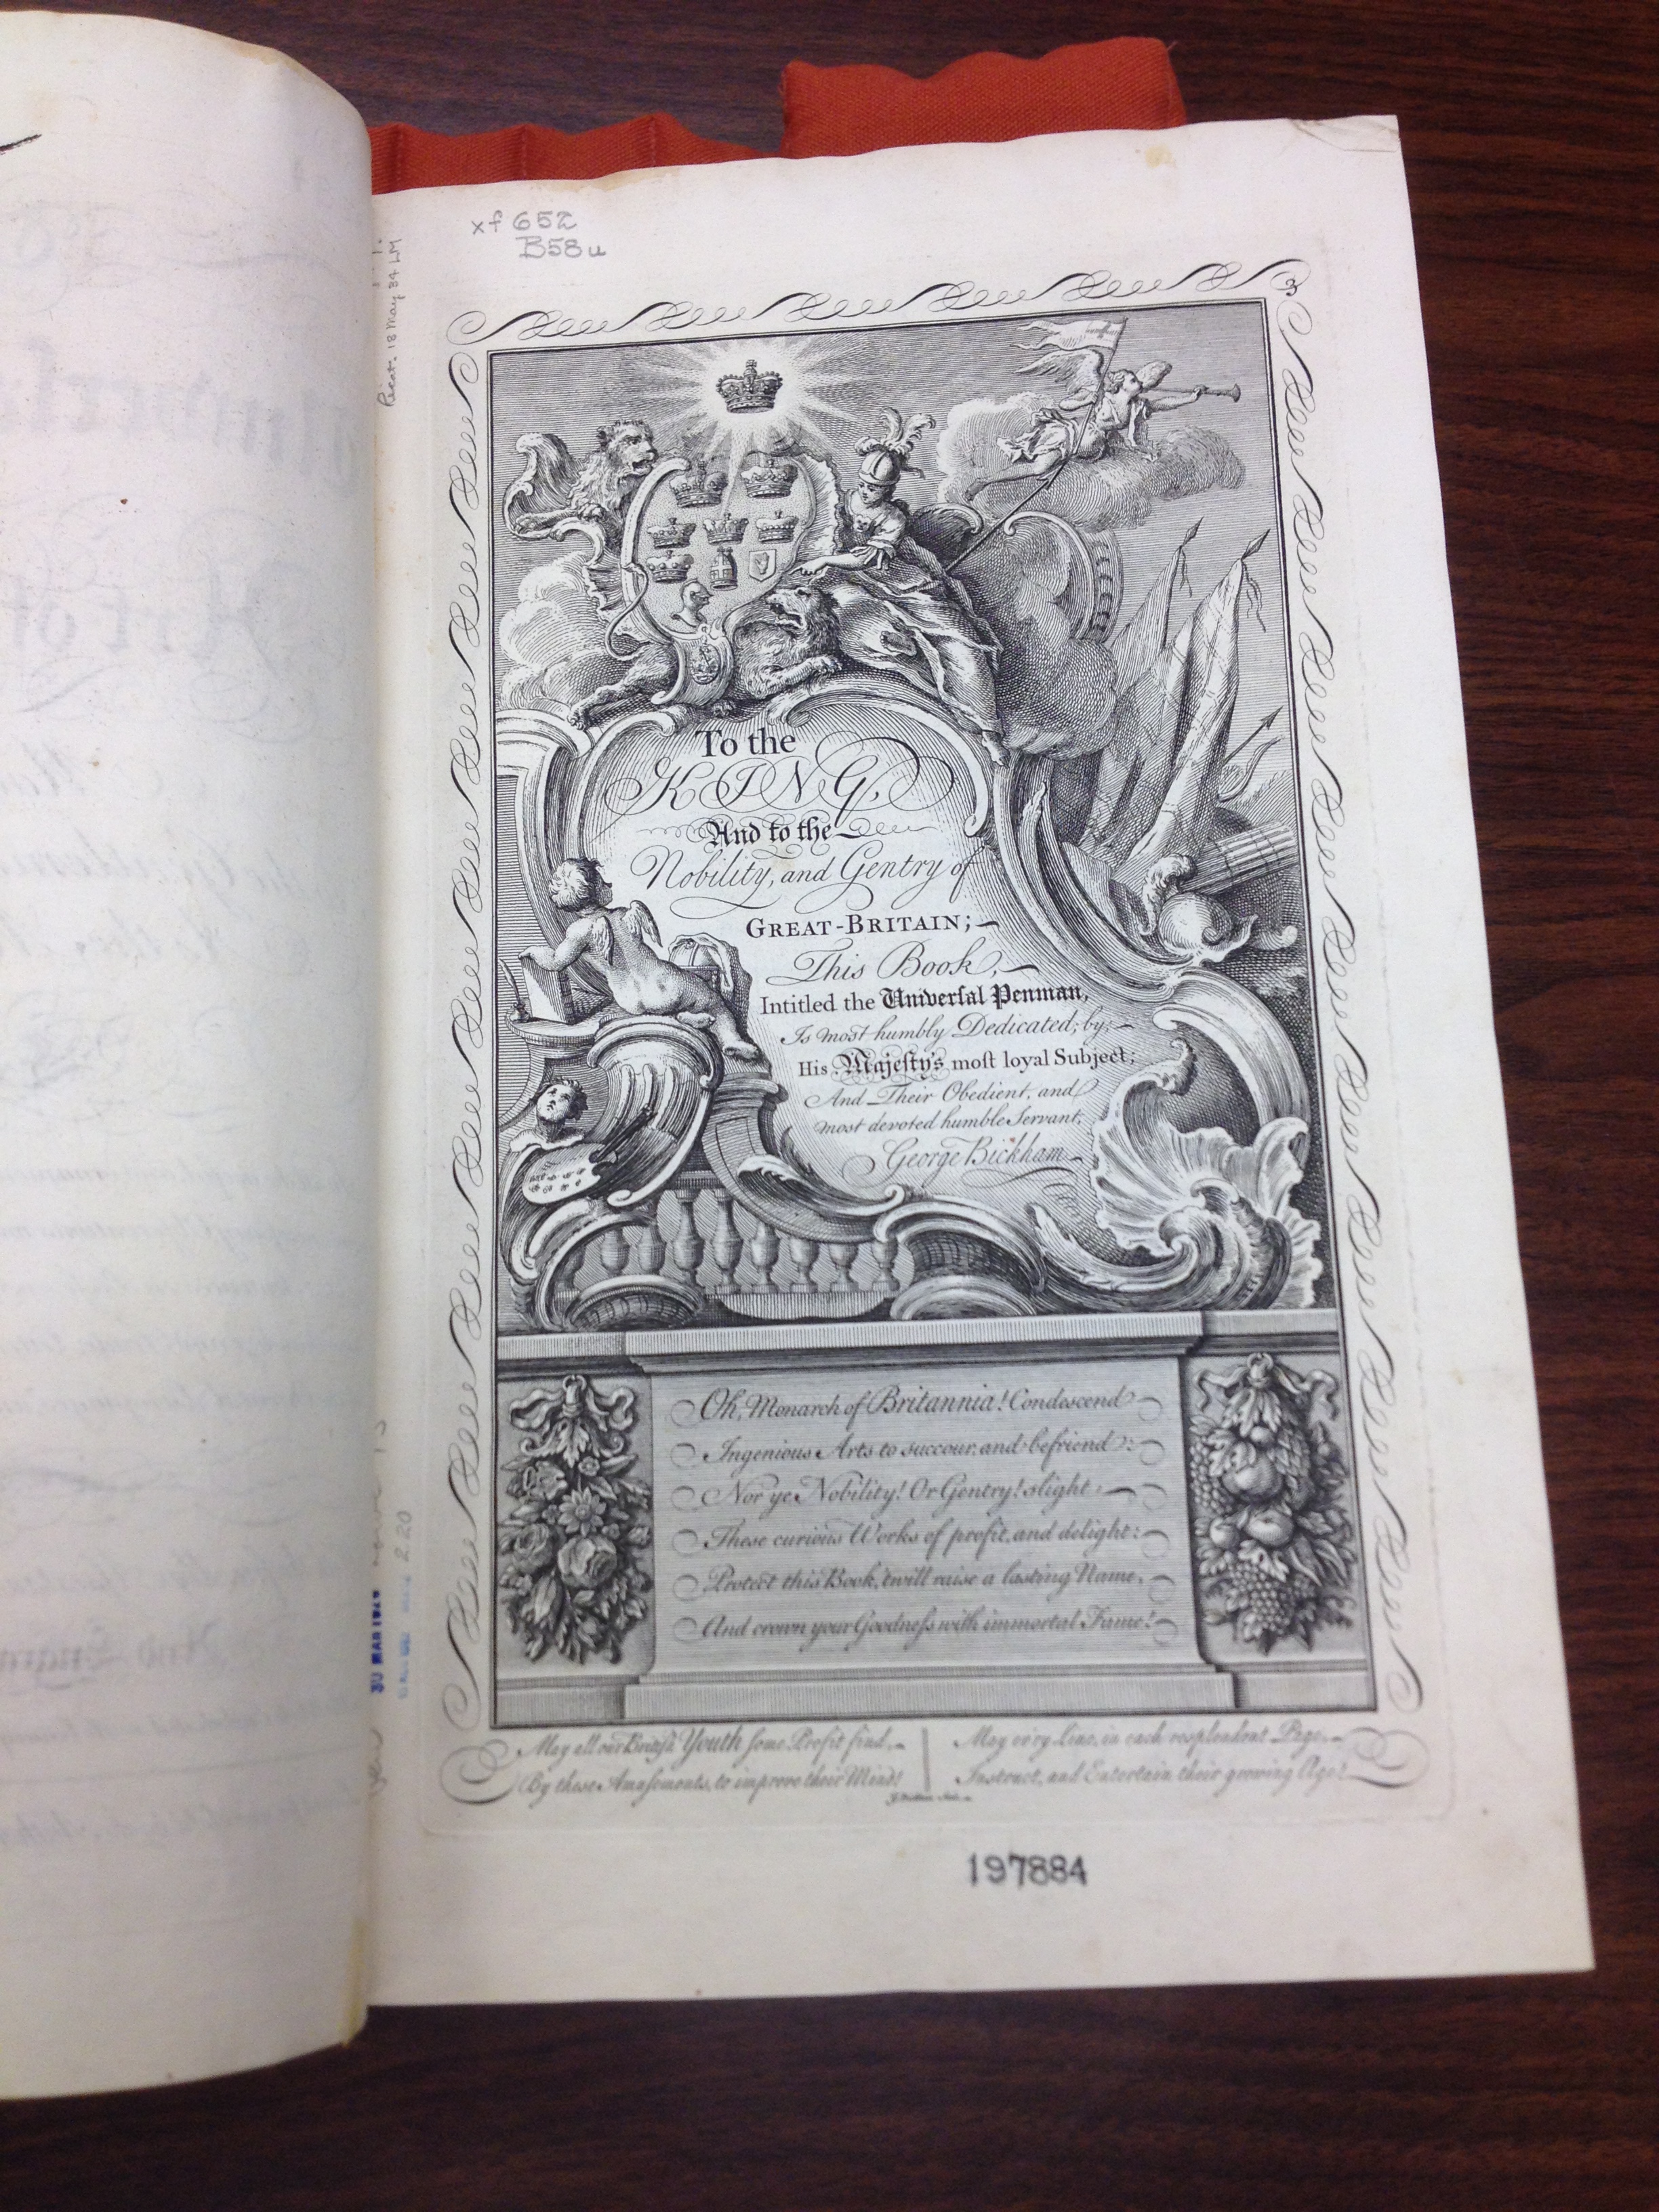 xf 652
B58u
Recat. 18 May 34 LM
3
To the
KING,
And to the
Nobility, and Gentry of
GREAT-BRITAIN;
This Book,
Intitled the Univerſal Penman,
Is most humbly Dedicated, by,
His Majeſty's moſt loyal Subject;
And Their Obedient, and
most devoted humble Servant,
George Bickham
Oh, Monarch of Britannia! Condescend
Ingenious Arts to succour, and befriend:
Nor ye Nobility! Or Gentry! slight,
These curious Works of profit, and delight:
Protect this Book, 'twill raise a lasting Name,
And crown your Goodneſs with immortal Fame!
May all our Britiſh Youth ſome Profit find,
By these Amuſements, to improve their Mind!
May ev'ry Line, in each resplendent Page,
Instruct, and Entertain their growing Age!
197884
30 MAR 1921
220